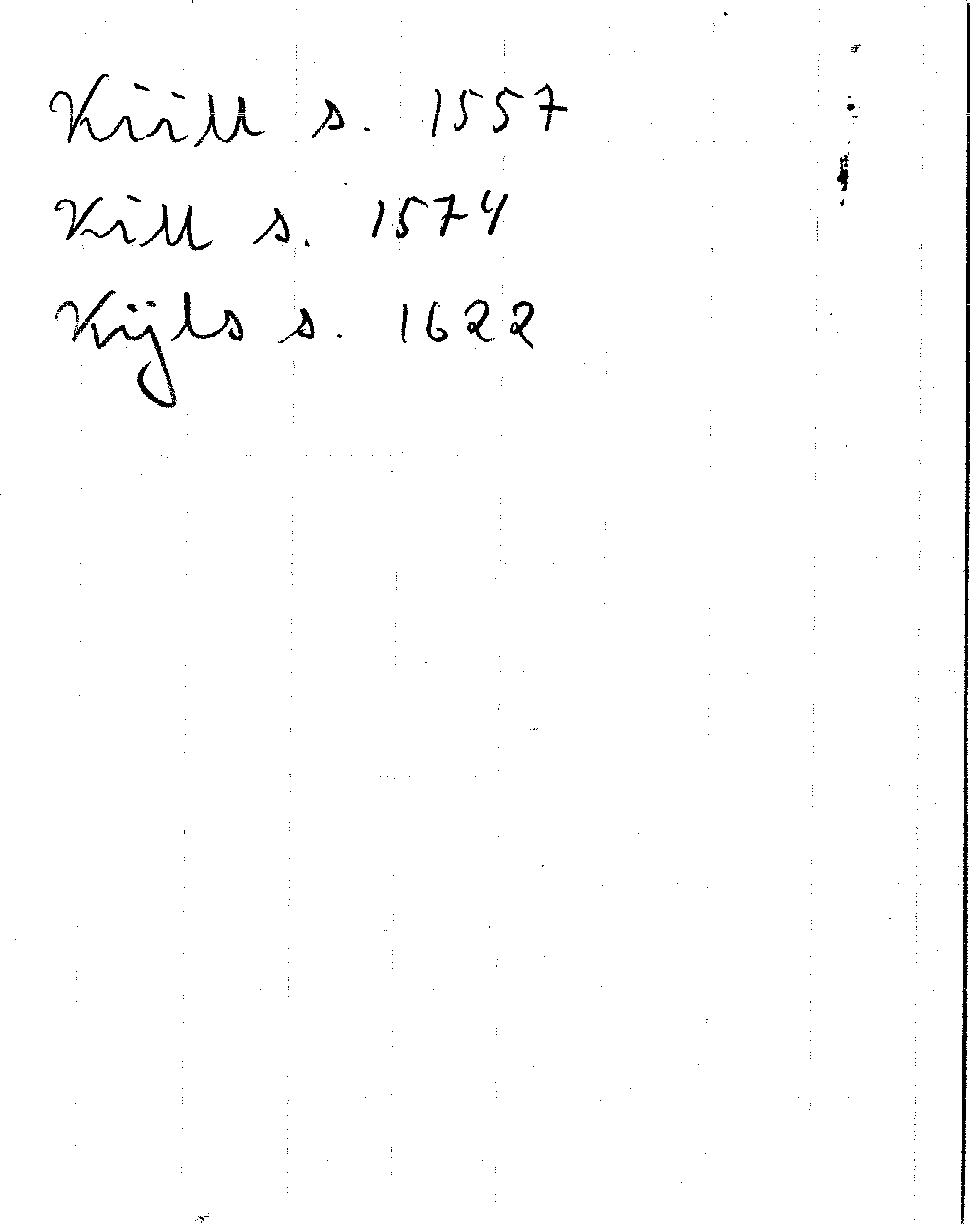 Kiill s. 1557
Kill s. 1574
Kijls s. 1622